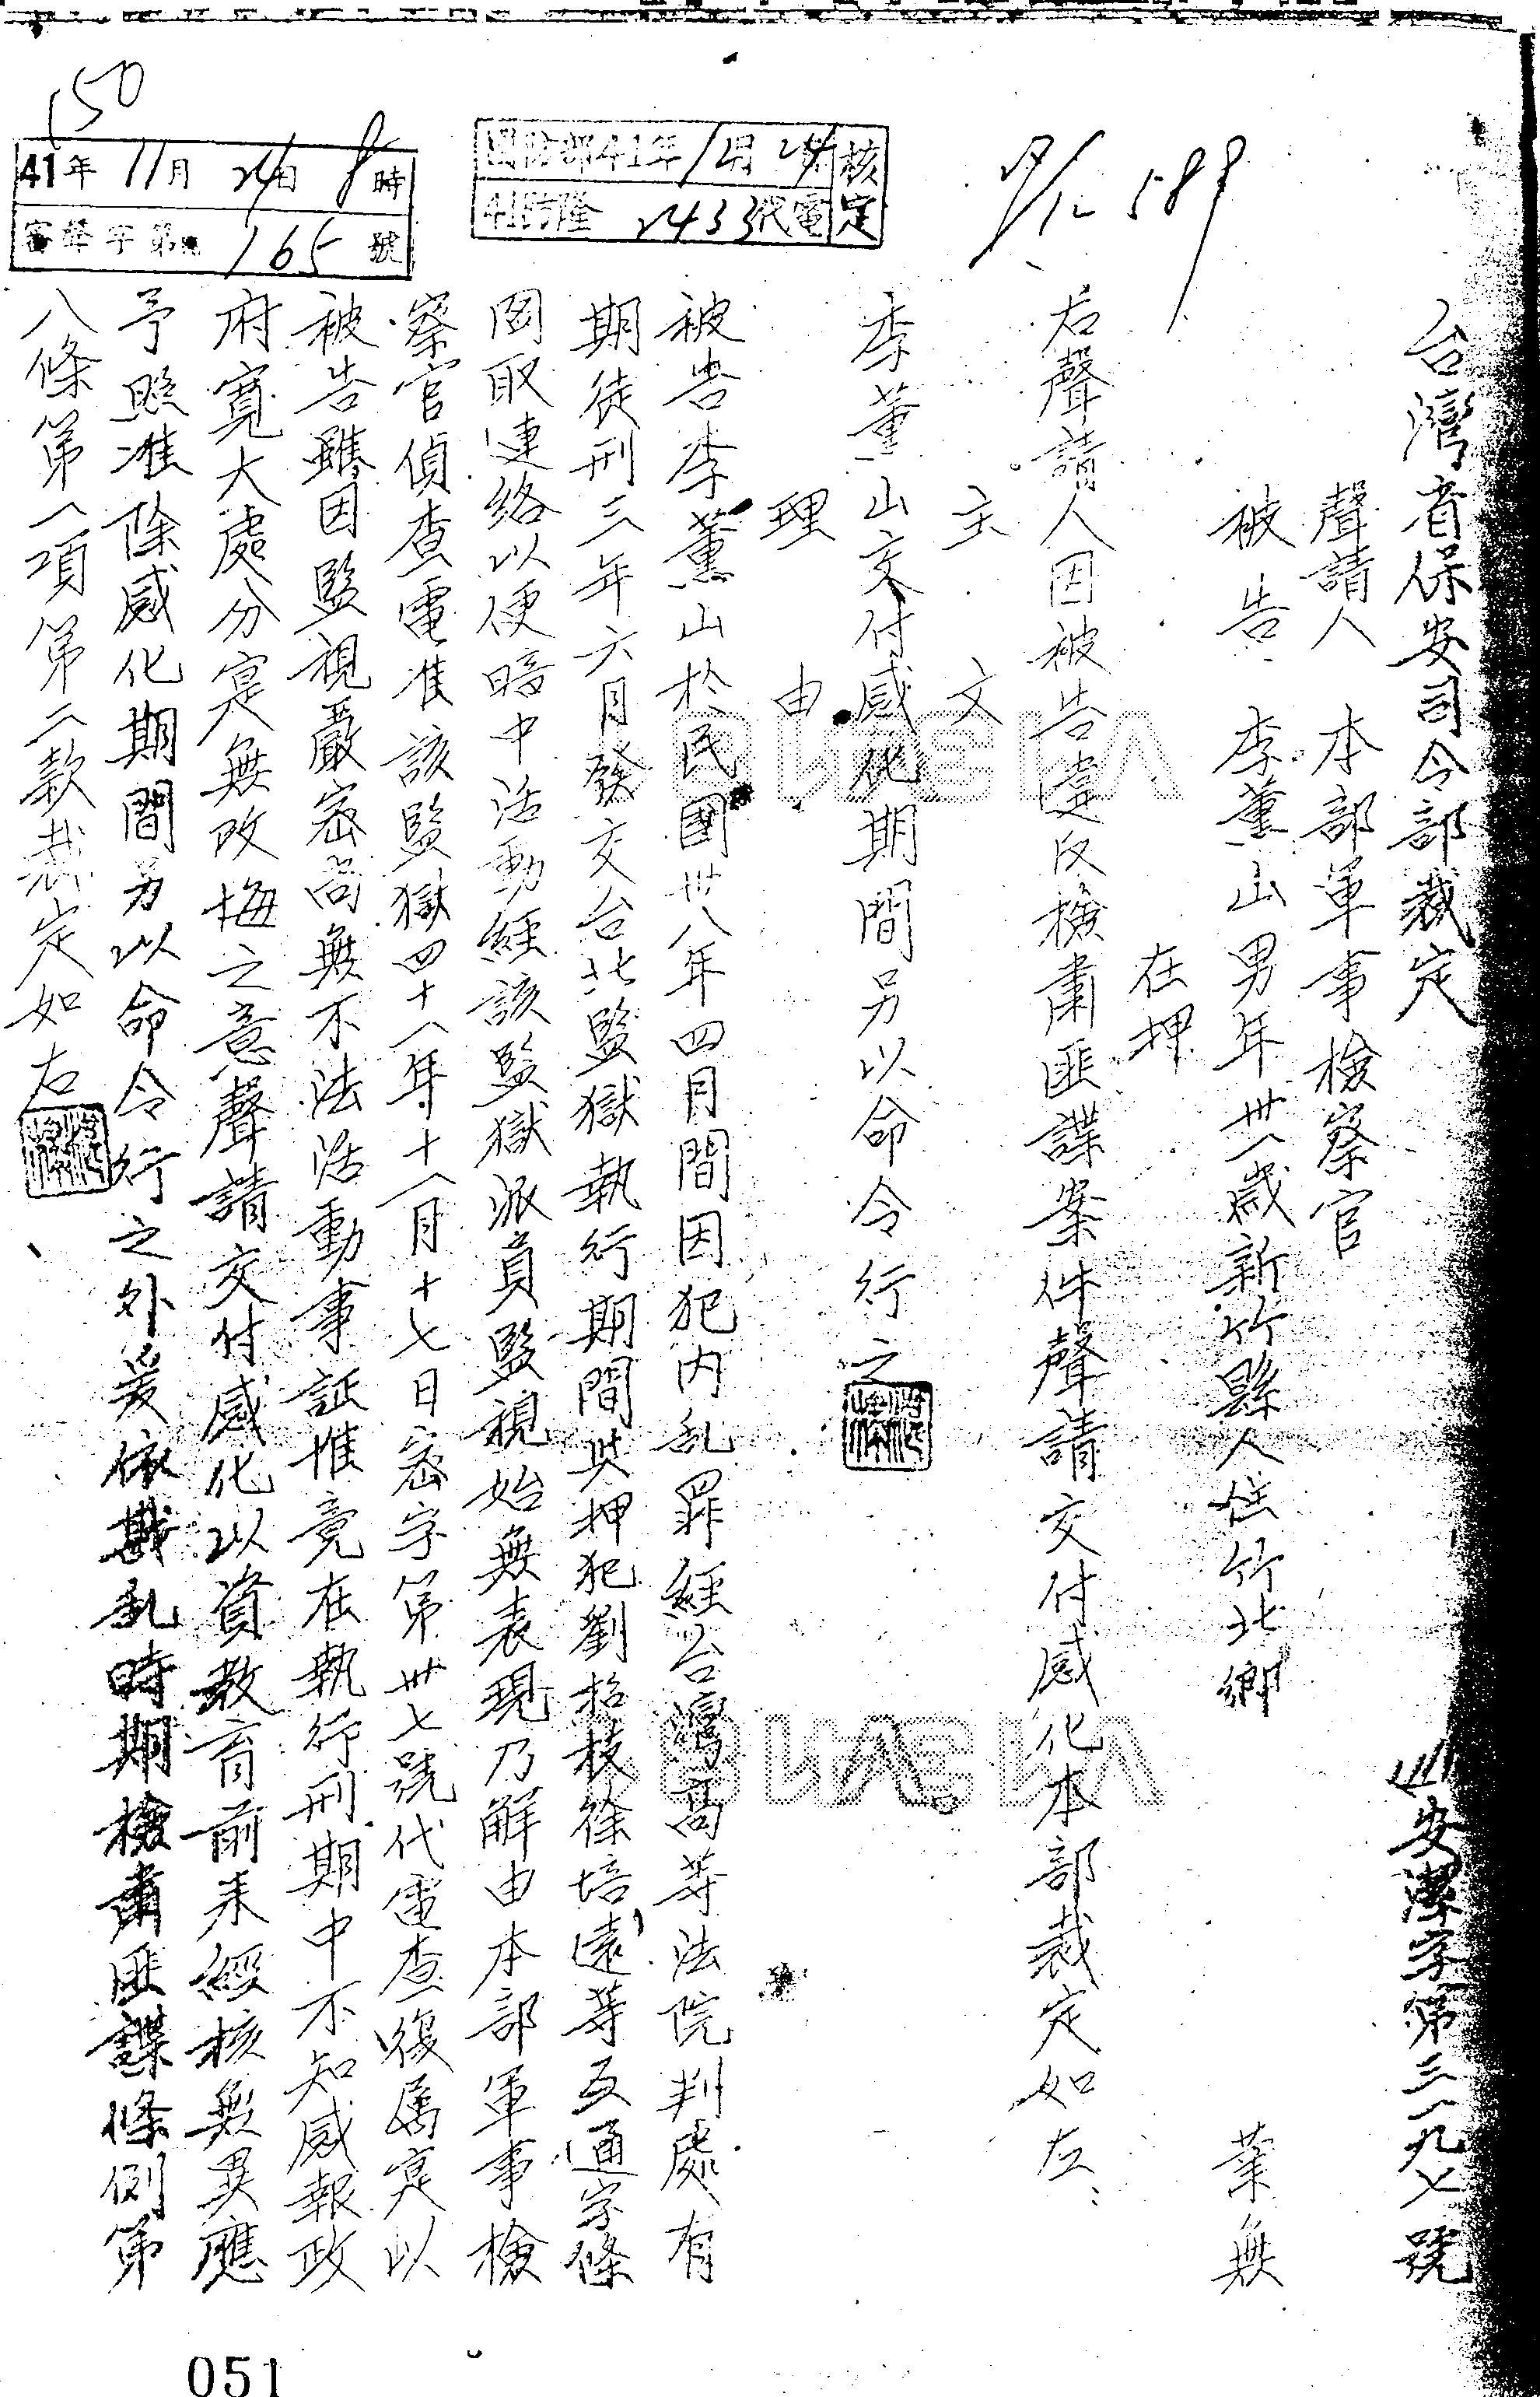 台灣省保安司令部裁定
安潔字第三一九七號
聲請人 本部軍事檢察官
被告 李薰山 男年卅一歲新竹縣人住竹北鄉 業無
在押
右聲請人因被告違反檢肅匪諜案件聲請交付感化本部裁定如左：
主 文
李薰山交付感化期間另以命令行之
理 由
被告李薰山於民國卅八年四月間因犯內乱罪經台灣高等法院判處有
期徒刑三年六月發交台北監獄執行期間與押犯劉招枝徐培遠等互通字條
図取連絡以便暗中活動經該監獄派員監視始無表現乃解由本部軍事檢
察官偵查電准該監獄四十一年十一月十七日密字第卅七號代電查復屬寔以
被告雖因監視嚴密尚無不法活動事証惟竟在執行刑期中不知感報政
府寬大處分寔無改悔之意聲請交付感化以資教育前来經核無異應
予照准除感化期間另以命令行之外爰依戡乱時期檢肅匪諜條例第
八條第一項第二款裁定如右
150
41年11月24日8時
審聲字第165號
國防部41年12月24
41防隆2433代電
核定
9/12 589
051